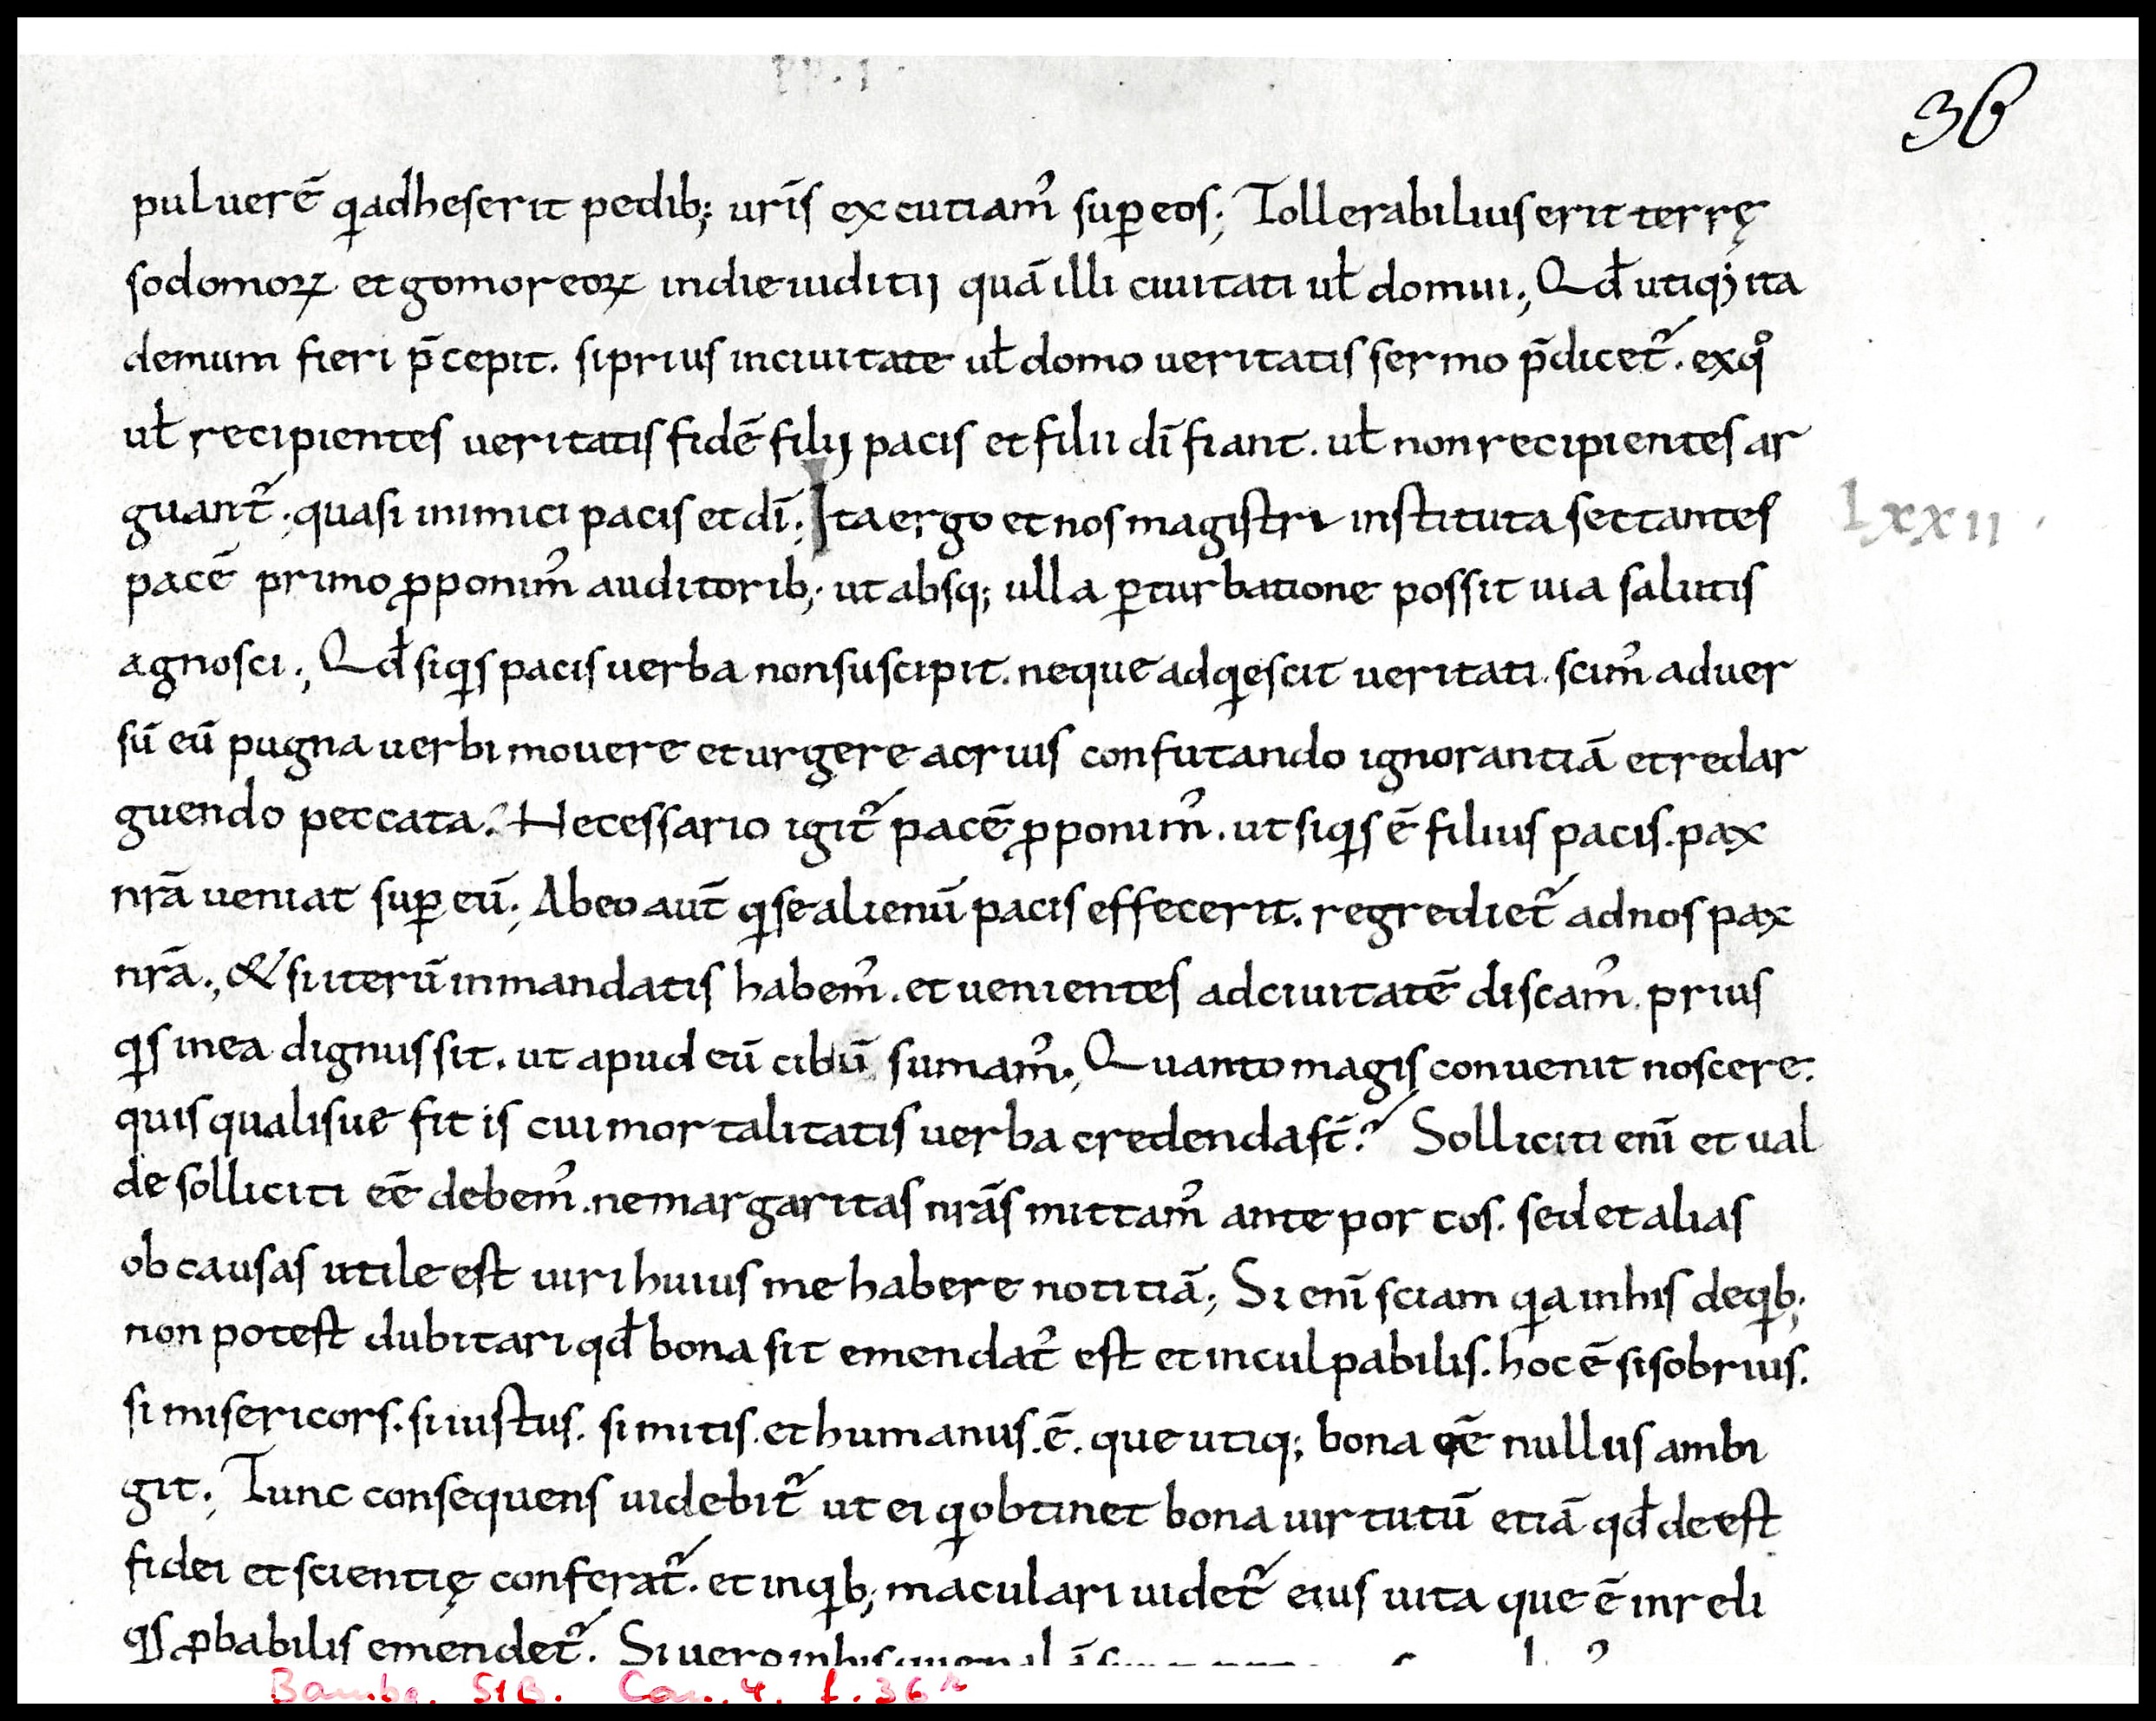 PP. I.
36
puluerē qͥ adheserit pedib; ur̄is excutiam᾿ suꝑ eos; Tollerabilius erit terrę
sodomoꝝ et gomoreoꝝ in die iuditij quā illi ciuitati ul̵ domui; Qd̵ utiq; ita
demum fieri p̄cepit. si prius in ciuitate ul̵ domo ueritatis sermo p̄dicet᷑. ex qͦ
ul̵ recipientes ueritatis fidē filij pacis et filii dī fiant. ul̵ non recipientes ar
guant᷑. quasi inimici pacis et dī; Ita ergo et nos magistri instituta sectantes LXXII.
pacē primo ꝓponim᾿ auditorib; ut absq; ulla ꝑturbatione possit uia salutis
agnosci; Qd̵ si qͥs pacis uerba non suscipit. neque adqͥescit ueritati. scim᾿ aduer
sū eū pugna uerbi mouere et urgere acrius confutando ignorantiā et redar
guendo peccata. Necessario igit᷑ pacē ꝓponim᾿. ut si qͥs ē filius pacis. pax
nr̄a ueniat suꝑ eū; Ab eo aut̄ qͥ se alienū pacis effecerit. regrediet᷑ ad nos pax
nr̄a; & si iterū in mandatis habem᾿. et uenientes ad ciuitatē discam᾿. prius
qͥs in ea dignus sit. ut apud eū cibū sumam᾿; Quanto magis conuenit noscere.
quis qualisue fit is cui mortalitatis uerba credenda st̄? Solliciti enī et ual
de solliciti eē debem᾿. ne margaritas nr̄as mittam᾿ ante porcos. sed et alias
ob causas utile est uiri huius me habere notitiā; Si enī sciam qͥa in his de qͥb;
non potest dubitari qd̵ bona sit emendat᾿ est et inculpabilis. hoc ē si sobrius.
si misericors. si iustus. si mitis. et humanus. ē. que utiq; bona eē nullus ambi
git; Tunc consequens uidebit᷑ ut ei qͥ obtinet bona uirtutū etiā qd̵ deest
fidei et scientię conferat᷑. et in qͥb; maculari uidet᷑ eius uita que ē in reli
qͥs ꝓbabilis emendet᷑. Si uero in his
Bambg. StB. Can. 4. f. 36r